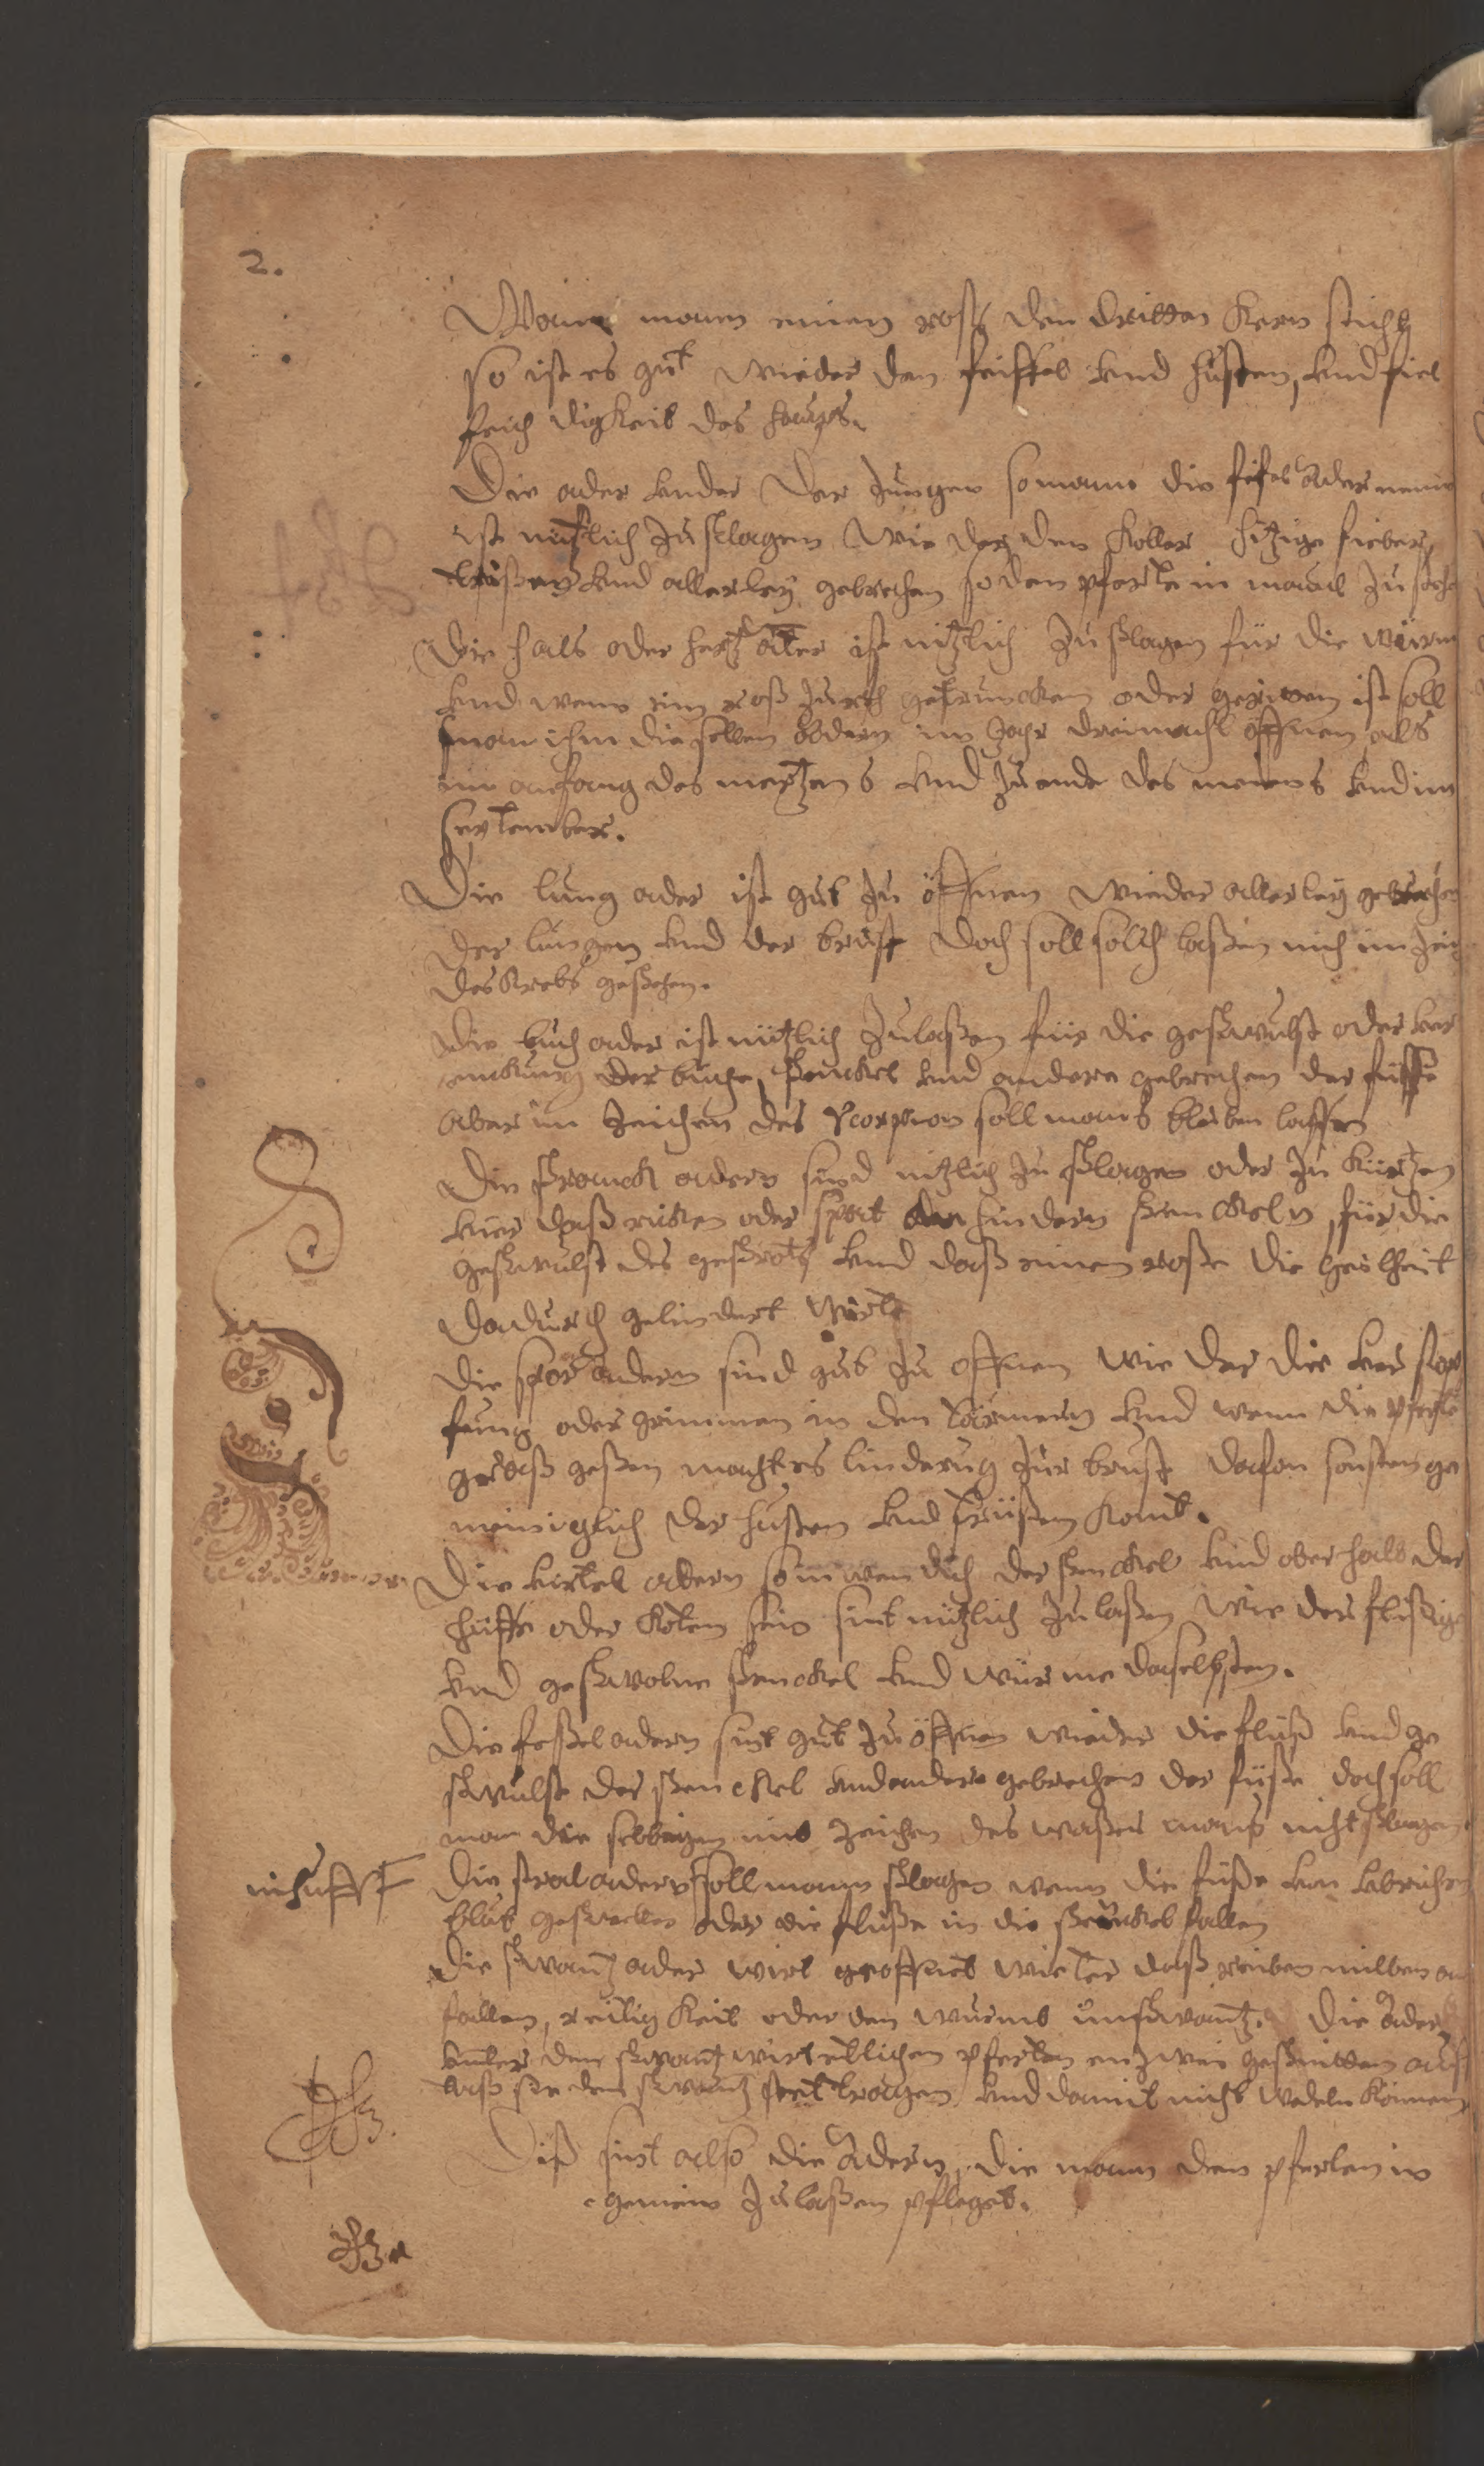 2.
Wann mann einen roß den dritten Kern sticht
so ist es gut wieder den feiffel vnd husten, vnd fiel
feich digkeit des haups.
Die ader vnder der Zungen so mann die fifel Ader nenn
ist nützlich zu slagen wie der den Koller hitzige fieber,
vnd allerley gebrechen so den pferte in maul zu
Die hals oder hertz ater ist nitzlich zu slagen für die würm
vnd wenn ein roß getruncken oder geriten ist soll
man ihm die selben addern im Jahr dreimahl öffnen, als
im anfang des mertzens vnd zu ende des meiens vnd im
september.
Die lung ader ist gut zu öffnen wieder allerley gebrechen
der lungen vnd der brust doch soll solch laßen nich im Zeich
des Krebs geßehen.
Die buch ader ist nützlich zu laßen für die geswulst oder ver
renckung der buge, Senckel vnd andere gebrechen der füsse
aber im Zeichen des scorpion soll mans bleiben lassen
Die Sranck adern sind nitzlich zu slagen oder zu kürtzen
vüer daß rücken oder spat den hindern senckeln, für die
geswulst des gesrots vnd daß einem roße die geilheit
dadurch gelindert wirt
Die spor Adern sind gut zu offnen wie der die ver stop
fung oder grimmen in den Därmern vnd wenn die pferte
geßen macht es linderug zur brust dafon sonsten ge
meiniglich der husten vnd kommt.
Die adern so inwendich der senckel vnd ober halb der
hüffe oder köten sein sint nützlich zu laßen wie der flißige
vnd geswolne senckel vnd würme daselbsten.
Die feßel adern sint gut zu öffnen wieder die flüß vnd ge
swulst der senckel vnd ander gebrechen der füße doch soll
man die selbigen im Zeichen des waßer mans nicht slagen.
in huff
Die stral adern soll mann slagen wenn die füße von vbrichen
blut geswellen oder die flüße in die senckel fallen
Die swantz ader wirt geoffnet wieter daß reiben milben aus
fallen, reitig keit oder den wurmb im swantz. Die Ader
vnter dem swantz wirt etlichen pferten enzwei gesnitten auf
taß sie den swantz stet tragen vnd damit nicht wedeln können
Diß sint also die Adern, die mann den pferten in
gemein zu laßen pfleget.